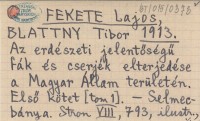 FEKETE Lajos,
BLATTNY Tibor 1913.
Az erdészeti jelentőségű
Fák és cserjék elterjedése
a Magyar Állam területén.
Első Kötet [tom 1]. – Selmec-
bánya. Stron VIII, 793, illustr.